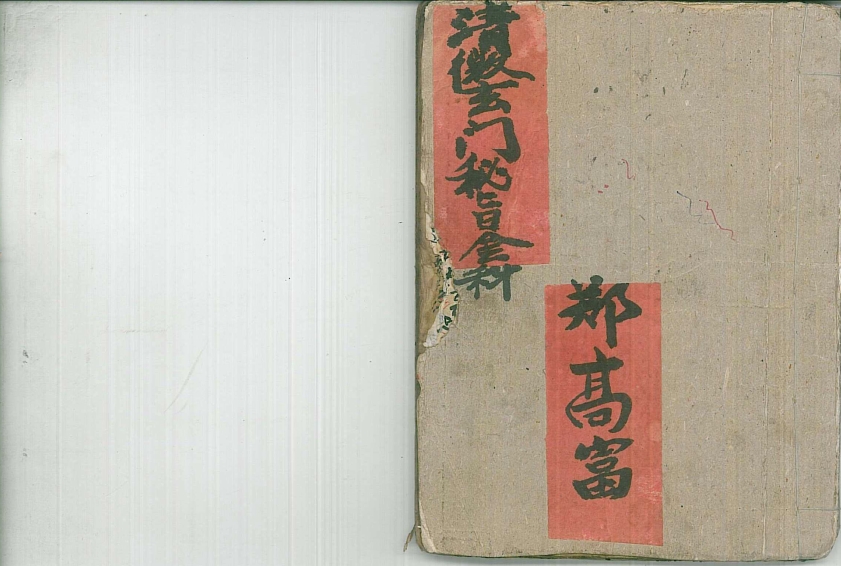 清微玄门秘旨全科
郑高富